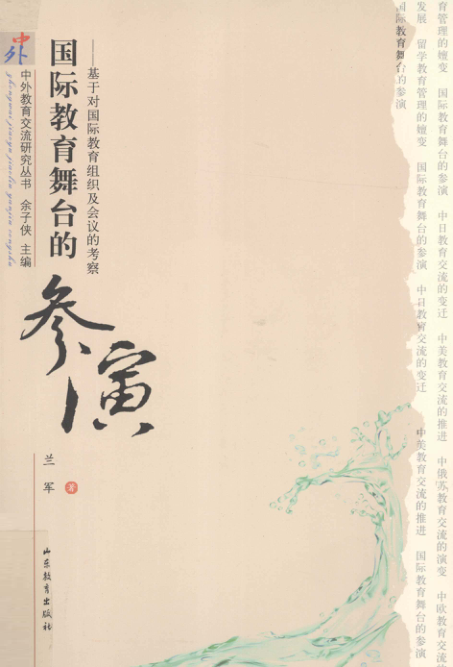 中外
中外教育交流研究丛书 余子侠 主编
国际教育舞台的
参演
——基于对国际教育组织及会议的考察
兰军 著
山东教育出版社
国际教育舞台的参演
发展 留学教育管理的嬗变 国际教育舞台的参演 中日教育交流的变迁 中美教育交流的推进 国际教育舞台的参演
育管理的嬗变 国际教育舞台的参演 中日教育交流的变迁 中美教育交流的推进 中俄苏教育交流的演变 中欧教育交流